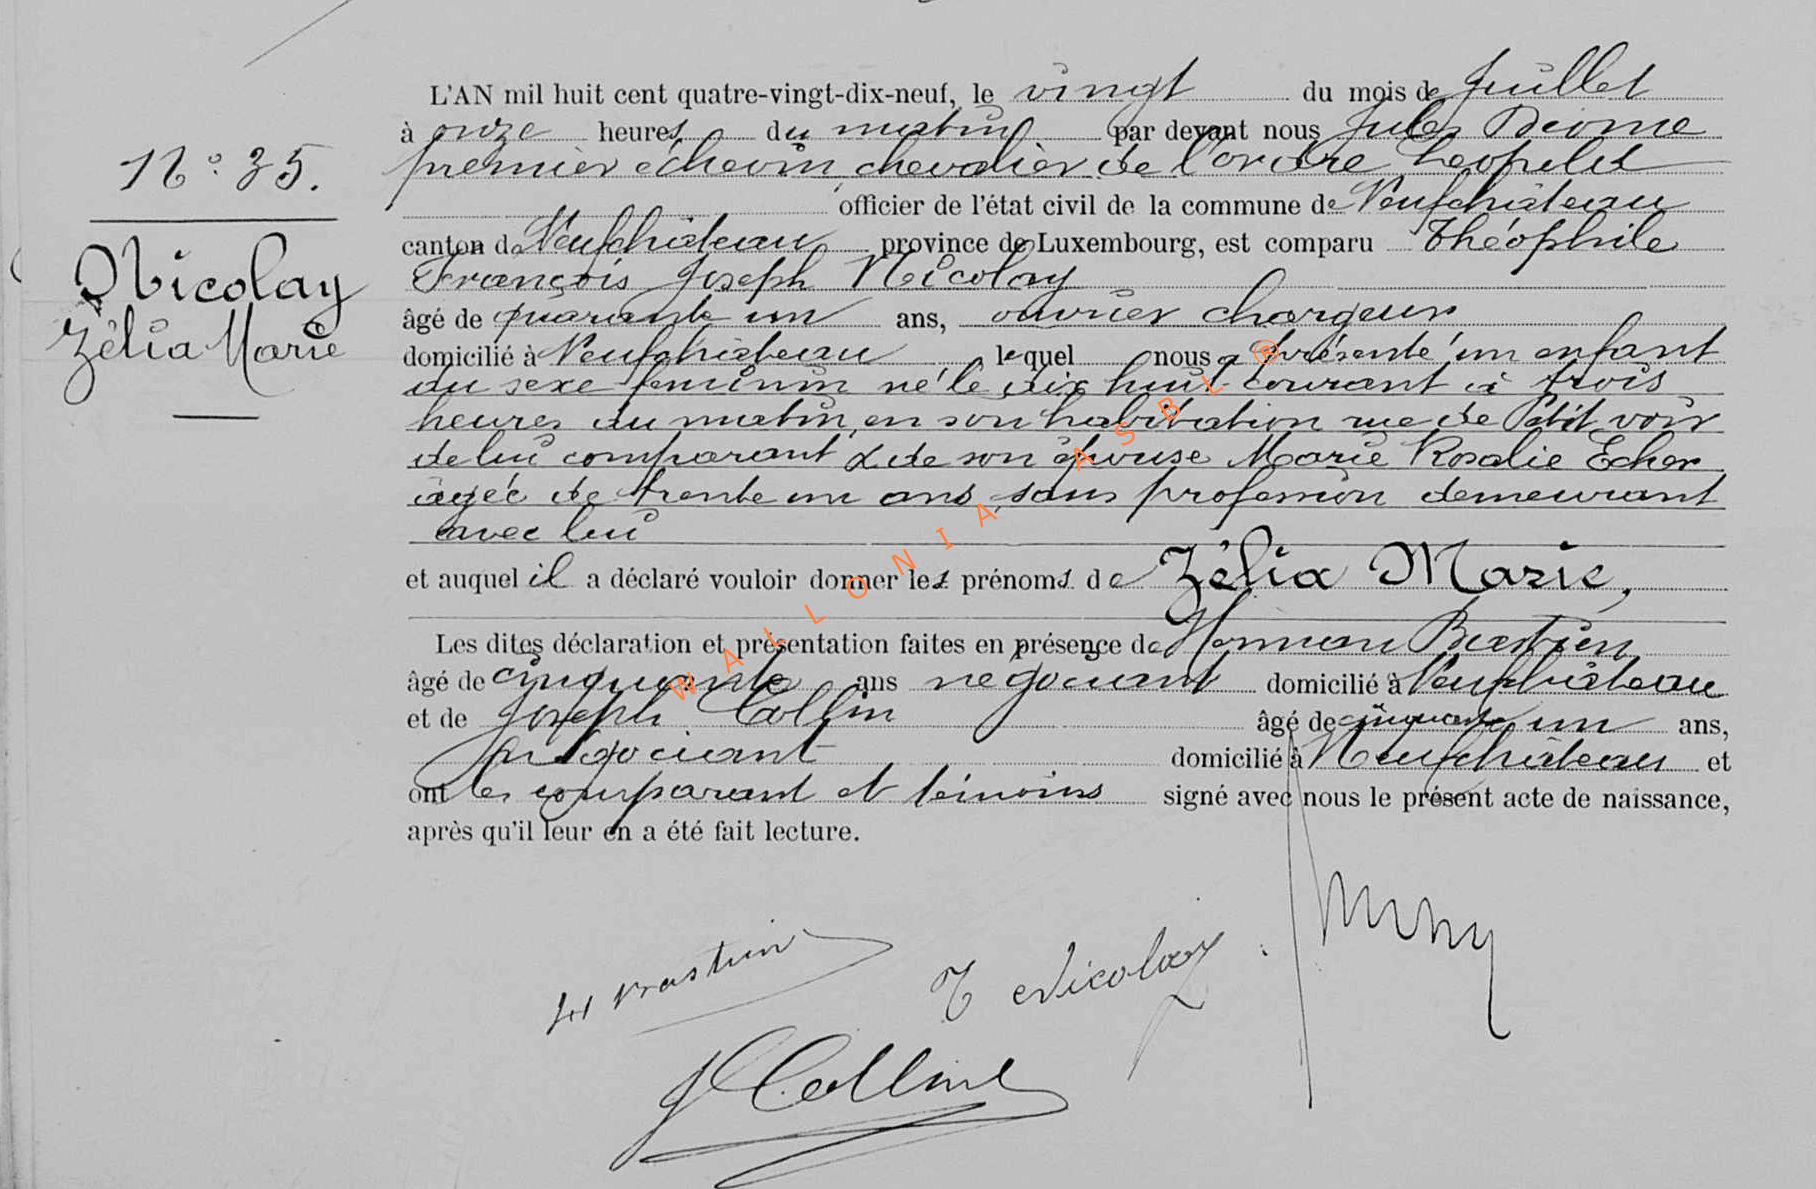 L'AN mil huit cent quatre-vingt-dix-neuf, le vingt du mois de Juillet
à onze heures du matin par devant nous Jules
N° 35.
premier échevin, chevalier de l'ordre Léopold
officier de l'état civil de la commune de Neufchâteau
canton de Neufchâteau province de Luxembourg, est comparu Théophile
Nicolay
François Joseph Nicolay
âgé de quarante un ans, ouvrier chargeur
Zélia Marie
domicilié à Neufchâteau lequel nous a présenté un enfant
du sexe féminin né le dix huit courant à trois
heures du matin, en son habitation rue de Petit voir
de lui comparant & de son épouse Marie Rosalie Echer
âgée de trente un ans, sans profession demeurant
avec lui
et auquel il a déclaré vouloir donner les prénoms de Zélia Marie,
Les dites déclaration et présentation faites en présence de Bastien
âgé de cinquante ans négociant domicilié à Neufchâteau
et de Joseph Collin âgé de cinquante un ans,
négociant domicilié à Neufchâteau et
ont les comparant et témoins signé avec nous le présent acte de naissance,
après qu'il leur en a été fait lecture.
WALLONIA ASBL ®
H Bastien
T Nicolay
J Collin